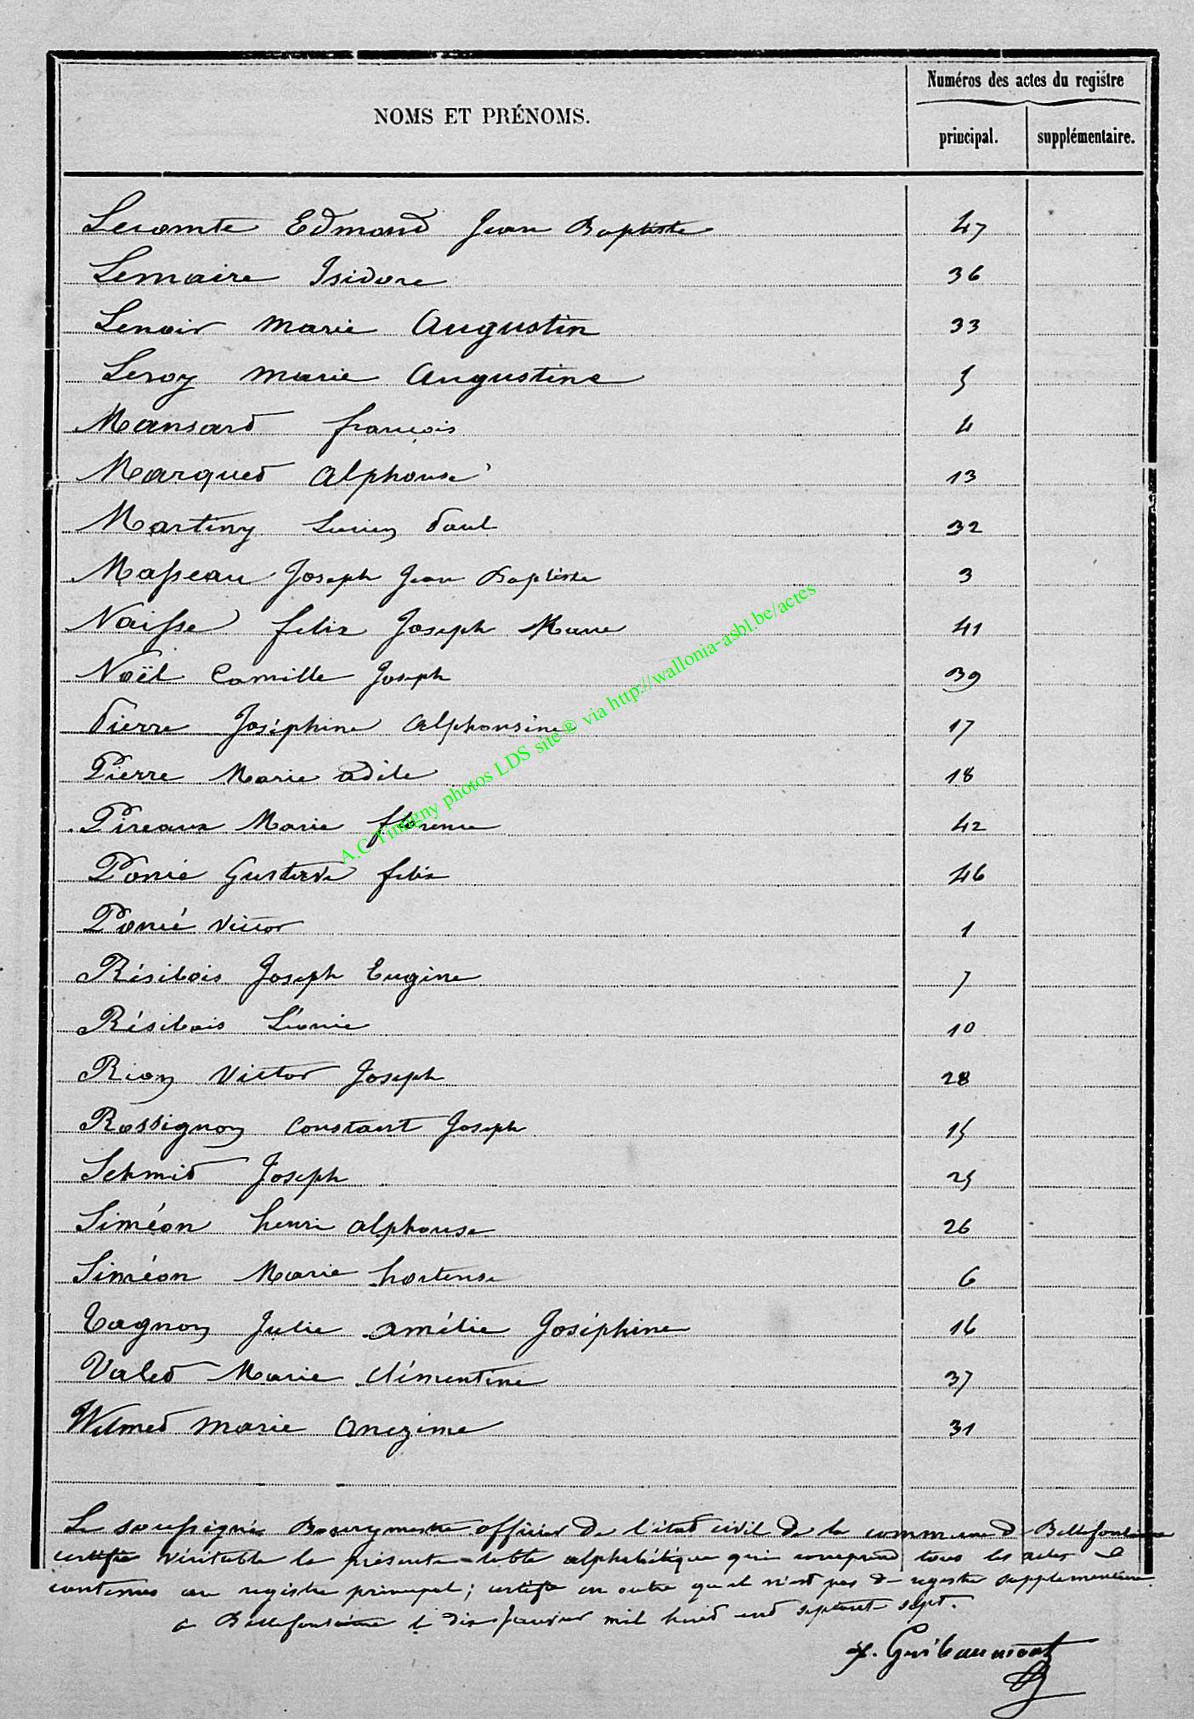 Numéros des actes du registre
NOMS ET PRÉNOMS.
principal. supplémentaire.
Lecomte Edmond Jean Baptiste 47
Lemaire Isidore 36
Lenoir Marie Augustin 33
Leroy Marie Augustine 5
Mansard françois 4
Marqued Alphonse 13
Martiny Lucien Paul 32
Masseau Joseph Jean Baptiste 3
Naisse felix Joseph Marie 41
Noël Camille Joseph 39
Pierre Joséphine Alphonsine 17
Pierre Marie adèle 18
Pireaux Marie florence 42
Poncé Gustave felix 46
Poncé Victor 1
Résibois Joseph Eugène 7
Résibois Léonie 10
Rion Victor Joseph 28
Rossignon Constant Joseph 15
Schmid Joseph 25
Siméon henri alphonse 26
Siméon Marie hortense 6
Tagnon Julie amélie Joséphine 16
Valed Marie Clémentine 37
Wilmed Marie Onezime 31
Le soussigné Bourgmestre officier de l'état civil de la commune de Bellefontaine
certifie véritable la présente table alphabétique qui comprend tous les actes
contenus au registre principal; certifie en outre qu'il n'est pas de registre supplémentaire
à Bellefontaine le dix Janvier mil huit cent septante sept.
Guibaumont
A.C Tintigny photos LDS site® via http://wallonia-asbl.be/actes